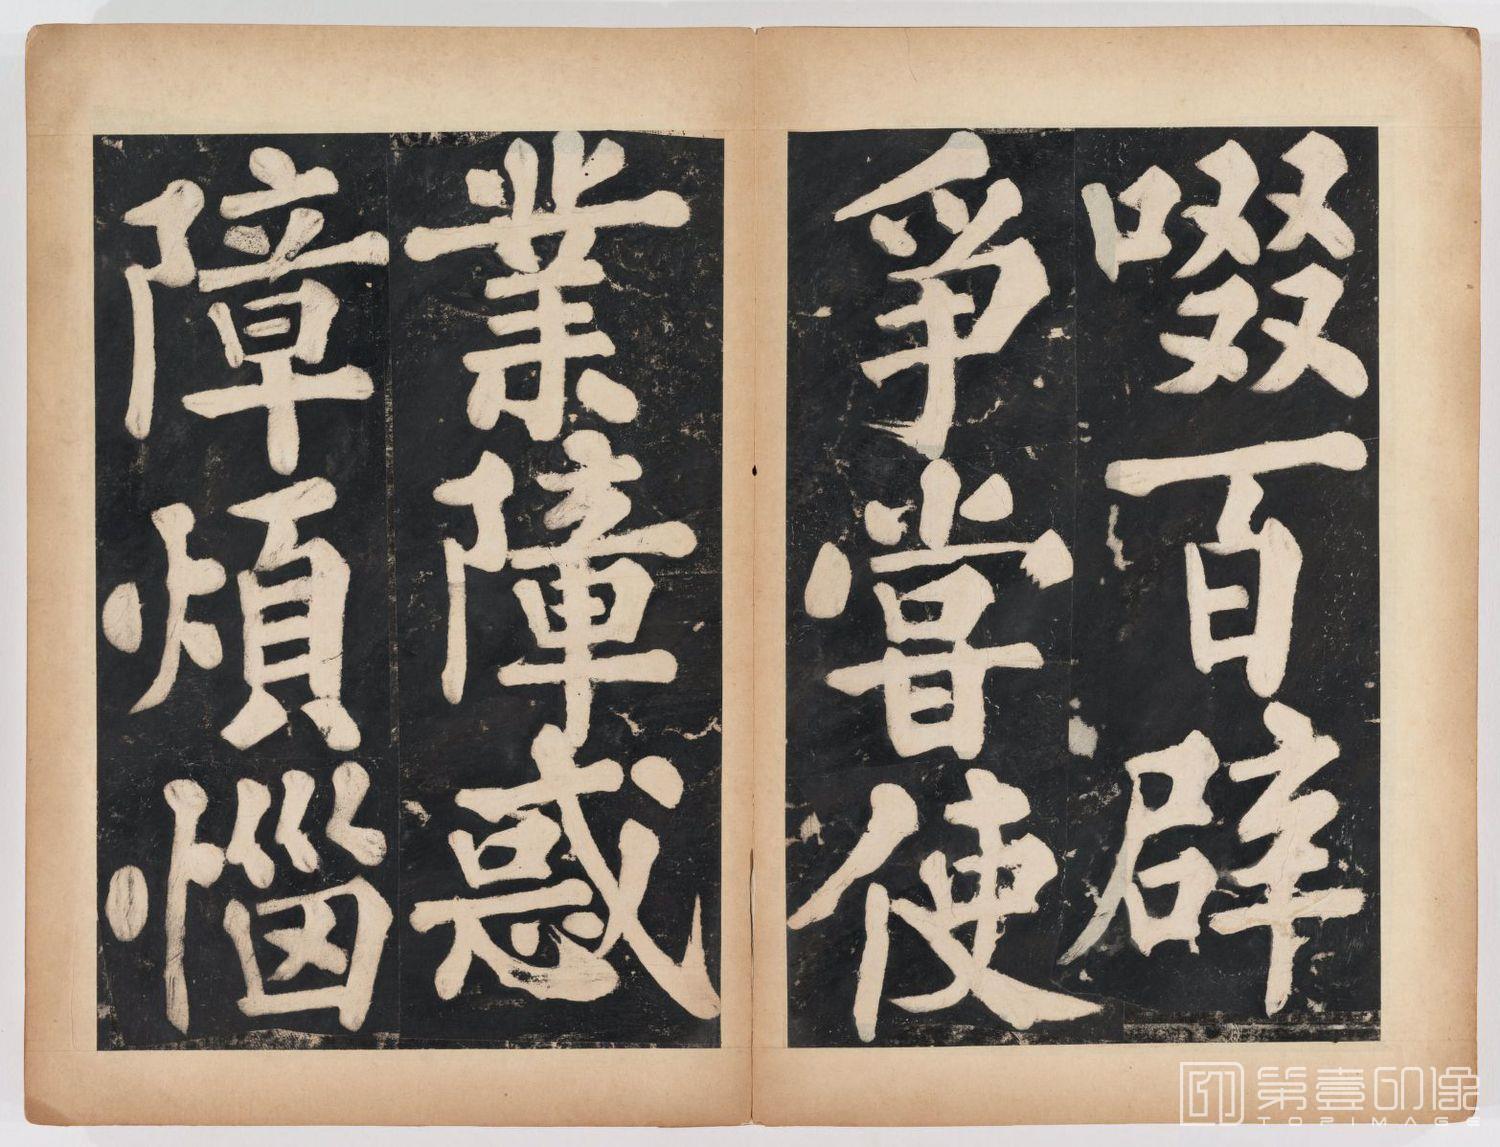 啜百辟
爭嘗使
業障惑
障煩惱
第壹印像
TOPIMAGE